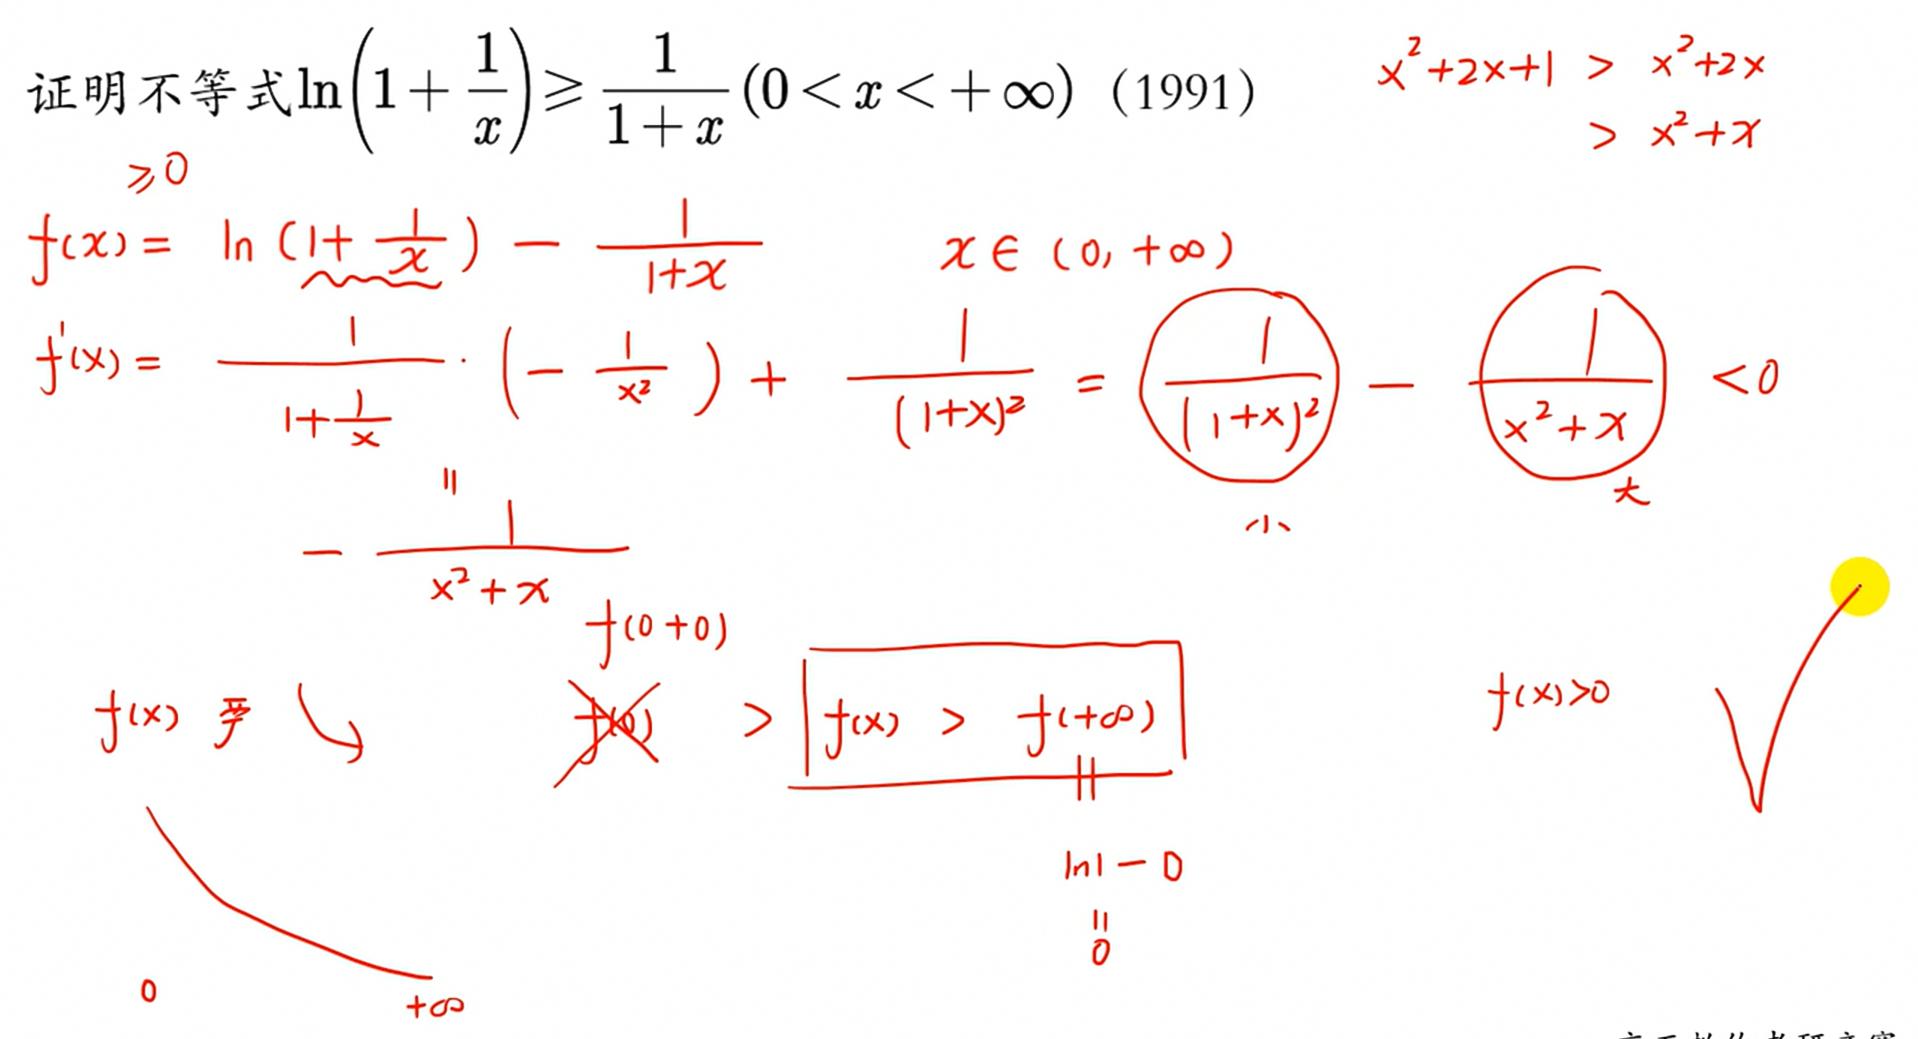 证明不等式ln(1+1/x)⩾1/(1+x)(0<x<+∞)(1991)
x²+2x+1 > x²+2x
> x²+x
⩾0
f(x)= ln(1+1/x) − 1/(1+x) x∈(0,+∞)
f'(x)= 1/(1+1/x)·(−1/x²)+1/(1+x)² = 1/(1+x)² − 1/(x²+x) <0
小 大
=
− 1/(x²+x)
f(0+0)
f(x) 严 ↘ f(0) > f(x) > f(+∞) f(x)>0
=
ln1−0
=
0
0 +∞